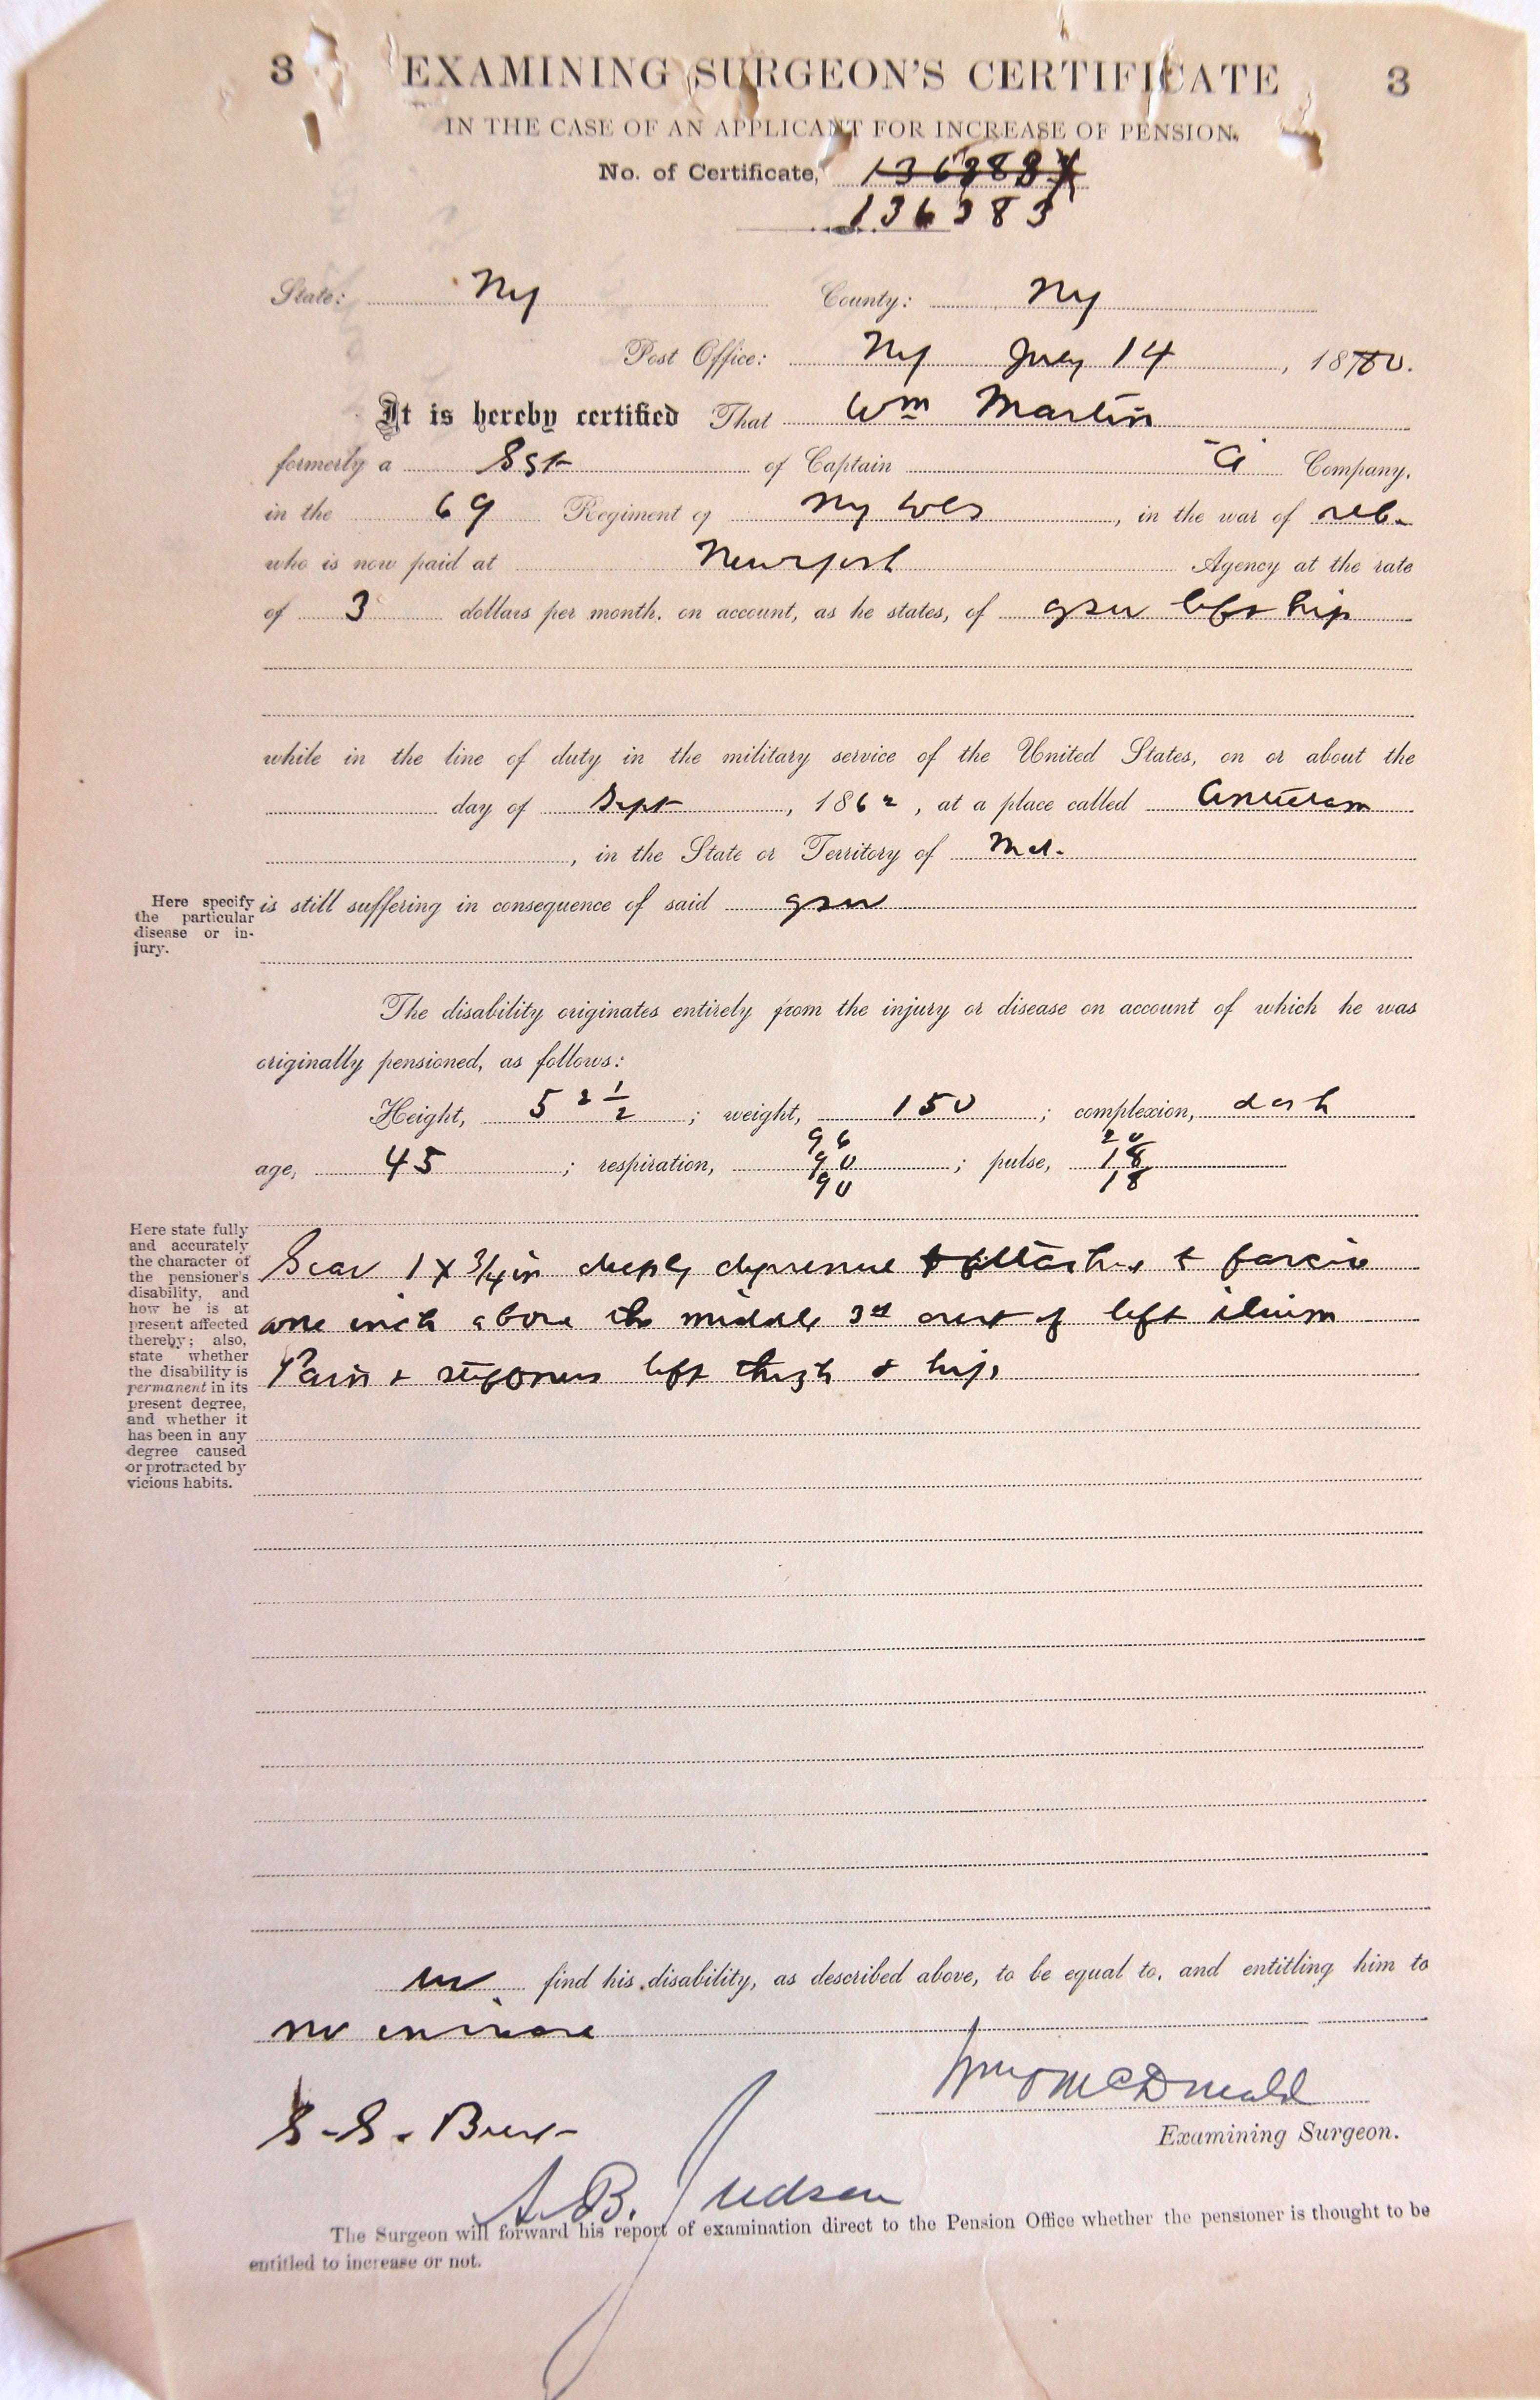 3 EXAMINING SURGEON'S CERTIFICATE 3
IN THE CASE OF AN APPLICANT FOR INCREASE OF PENSION.
No. of Certificate,
136383
State: Ny County: Ny
Post Office: Ny July 14, 1880.
It is hereby certified That Wm Martin
formerly a Sgt of Captain "A" Company,
in the 69 Regiment of Ny Vols, in the war of reb.
who is now paid at New York Agency at the rate
of 3 dollars per month, on account, as he states, of gsw left hip
while in the line of duty in the military service of the United States, on or about the
day of Sept, 1862, at a place called Antietam
, in the State or Territory of Md.
Here specify the particular disease or injury.
is still suffering in consequence of said gsw
The disability originates entirely from the injury or disease on account of which he was
originally pensioned, as follows:
Height, 5 2 1/2; weight, 150; complexion, dark
age, 45; respiration, 96 90 90; pulse, 20 18 18
Here state fully
and accurately
the character of
the pensioner's
disability, and
how he is at
present affected
thereby; also,
state whether
the disability is
permanent in its
present degree,
and whether it
has been in any
degree caused
or protracted by
vicious habits.
Scar 1 x 3/4 in deeply depressed & attached t fascia
one inch above the middle 3rd crest of left ilium
Pain & stiffness left thigh & hip
we find his disability, as described above, to be equal to, and entitling him to
no increase
McDonald
Examining Surgeon.
S. S. Burt
A. B. Judson
The Surgeon will forward his report of examination direct to the Pension Office whether the pensioner is thought to be
entitled to increase or not.